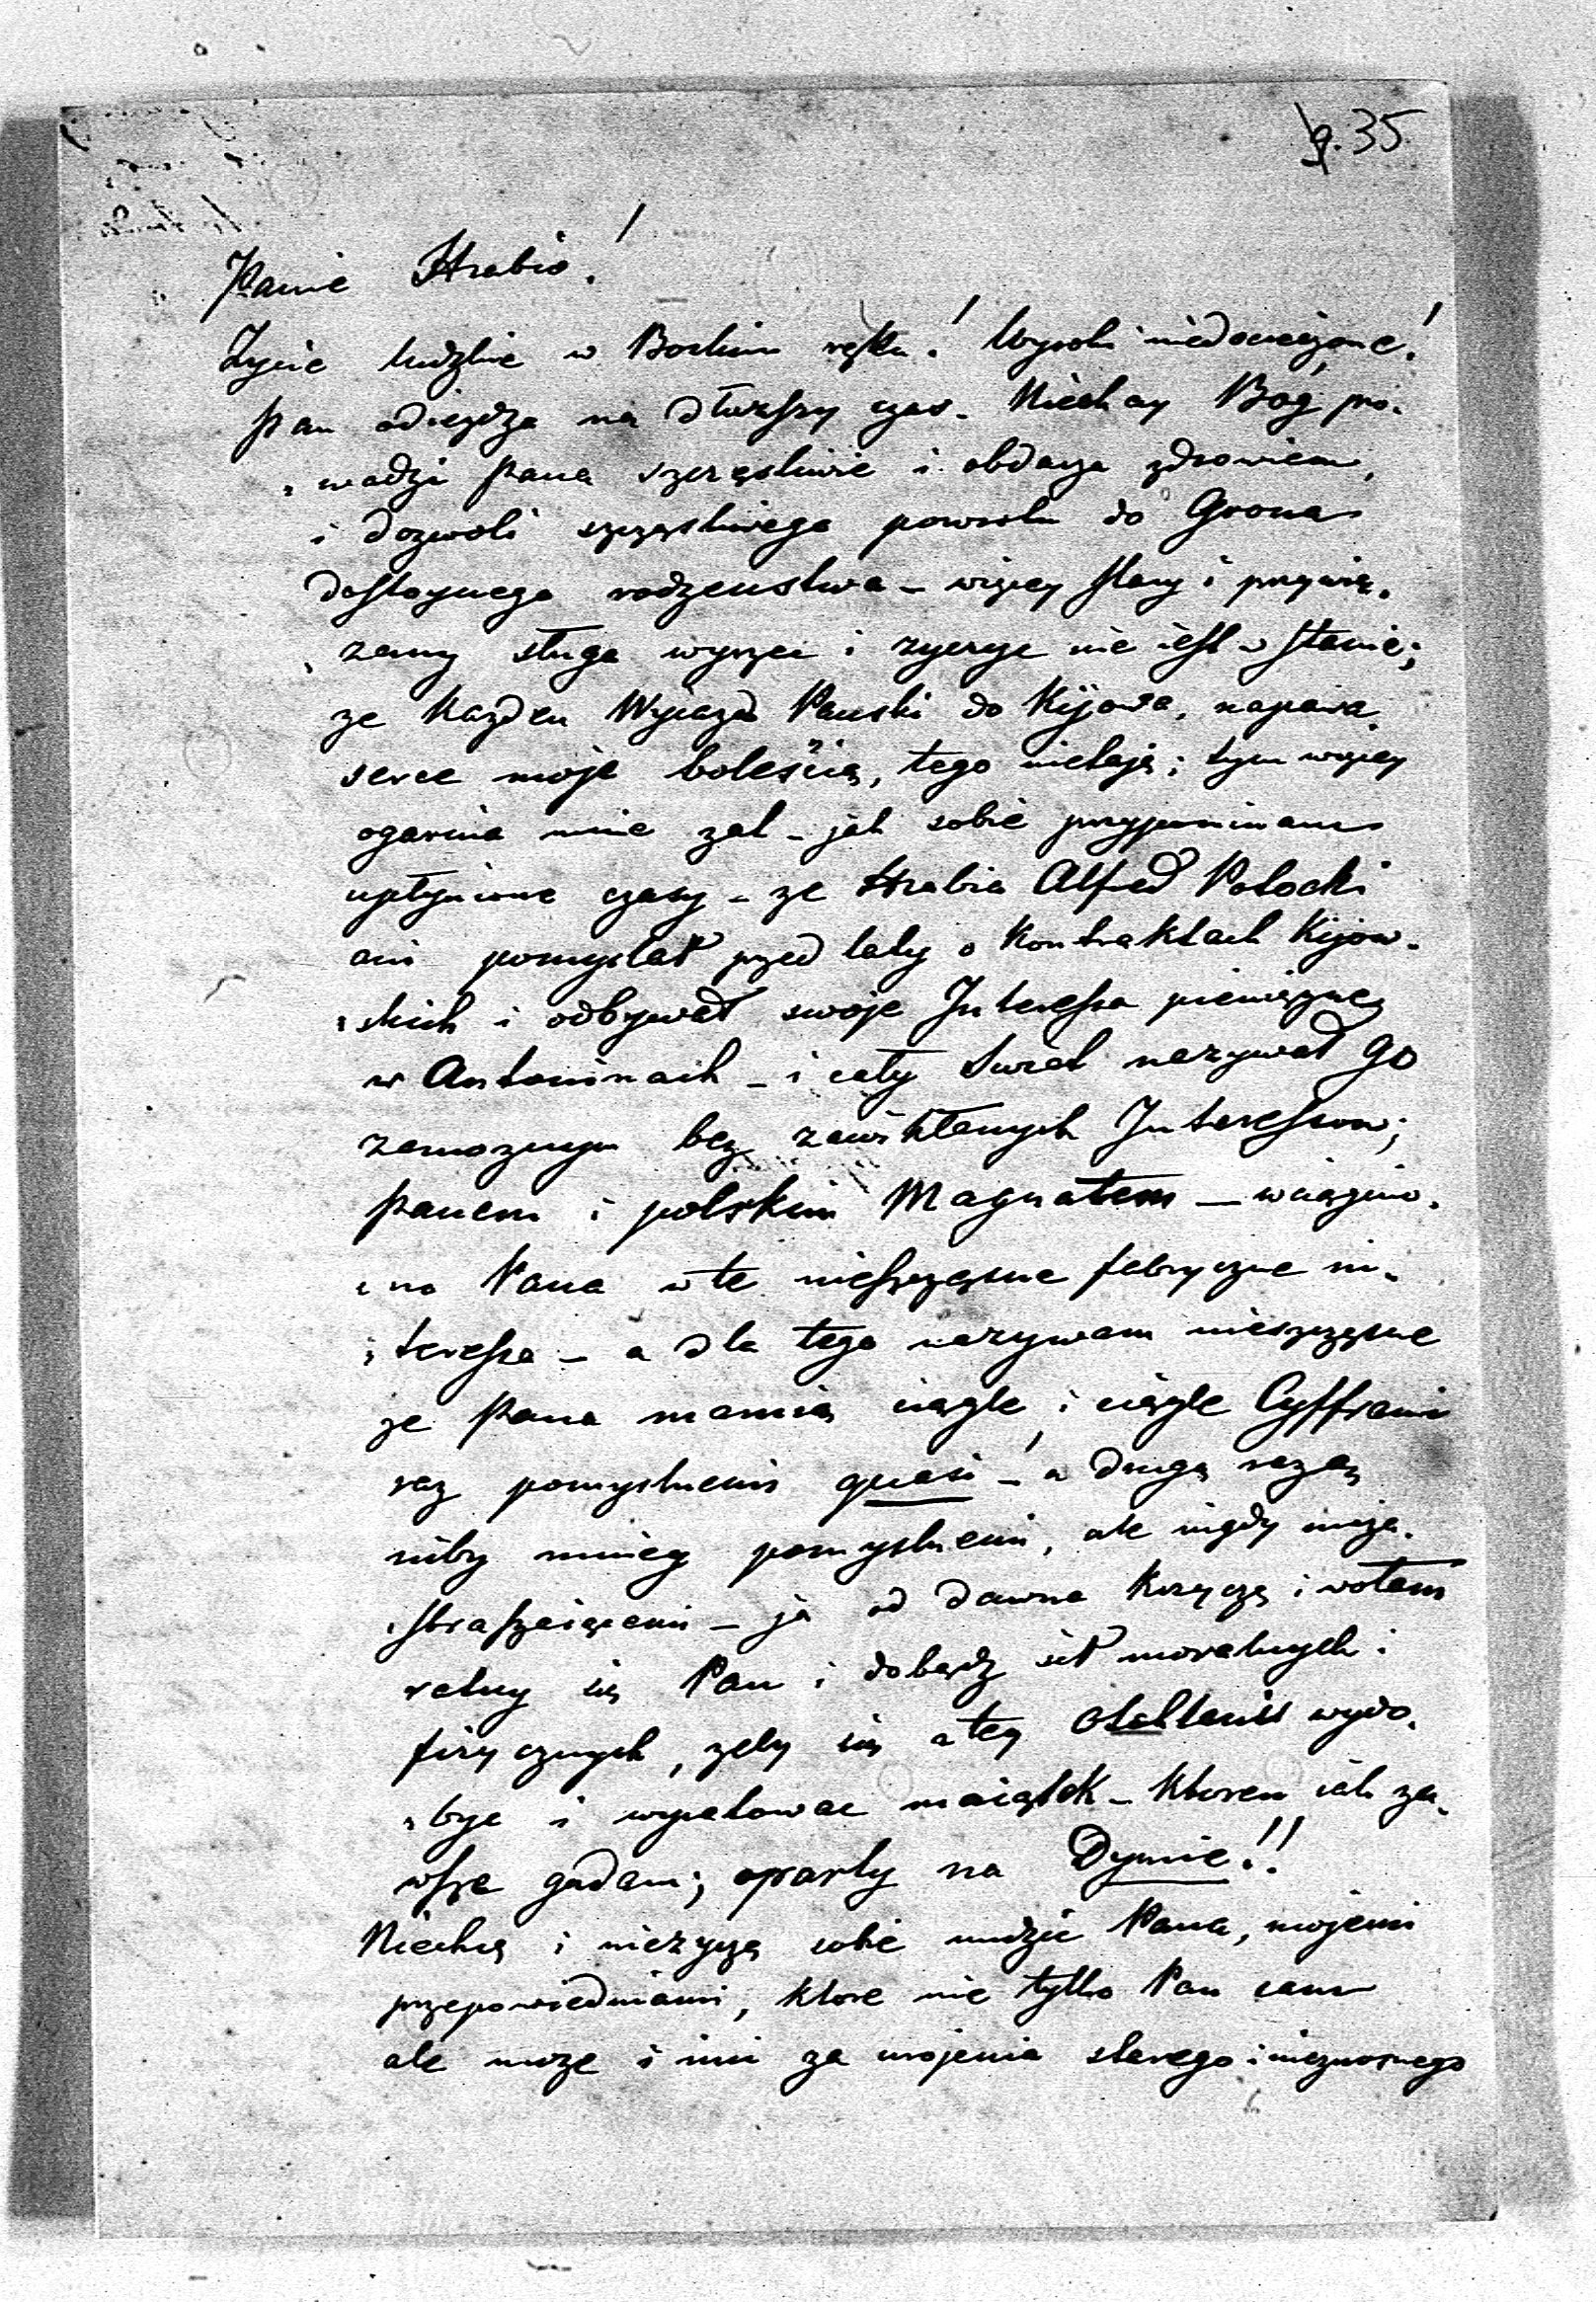 g. 35
Panie Hrabio!
Zycie ludzkie w Boskim ręku! Wyroki niedocieczone!
Pan odiezdza na dłuzszy czas - Niechay Bog pro-
wadzi Pana szczęsliwie i obdarza zdrowiem,
i dozwoli szczęsliwego powrotu do Grona
dostoynego rodzenstwa - więcey stary i przywią-
zany sługa wyrzec i zyczyc nie iest w stanie;
ze kazden Wyiazd Panski do Kijowa, napawa
serce moje boleścią, tego nietaję; tym więcey
ogarnia mnie zal - jak sobie przypominam
upłynione czasy - ze Hrabia Alfred Potocki
ani pomyslał przed laty o Kontraktach Kijow-
skich i odbywał swoje Interessa pienięzne
w Antoninach - i cały Swiat nazywał Go
zamoznym bez zawikłanych Interessow;
Panem i polskim Magnatem - wciągnio-
no Pana w te nieszczęsne fabryczne in-
teressa - a dla tego nazywam nieszczęsne
ze Pana mamią ciągle i ciągle Cyfframi
raz pomyslnemi quasi - a drugą razą
niby mniey pomyslnemi, ale nigdy nieza-
straszaiącemi - ja od dawna krzyczę i wołam
ratuy się Pan i dobądz sił moralnych i
fizycznych, zeby się z tey Otchłani wydo-
byc i wyratowac maiątek - ktoren iak za-
wsze gadam; oparty na Dymie!!
Niechcę i niezyczę sobie nudzic Pana, mojemi
przepowiedniami, ktore nie tylko Pan sam
ale moze i inni za urojenia starego i nieznosnego